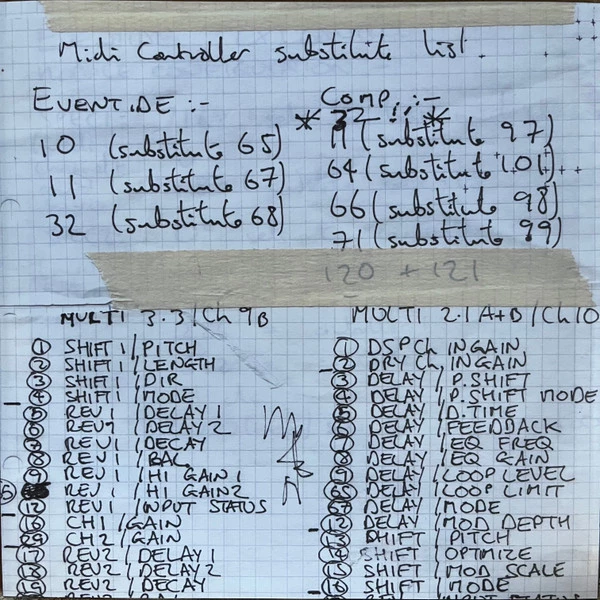 Midi Controller substitute list.
EVENTIDE :-
10 (substitute 65)
11 (substitute 67)
32 (substitute 68)
COMP, :-
* 32 *
11 (substitute 97)
64 (substitute 101)
66 (substitute 98)
71 (substitute 99)
120 + 121
MULTI 3.3/Ch 9B
① SHIFT 1/PITCH
② SHIFT 1/LENGTH
③ SHIFT 1/DIR
④ SHIFT 1/MODE
⑤ REV 1/DELAY 1
⑥ REV 1/DELAY 2
REV 1/DECAY
⑧ REV 1/BAL
⑨ REV 1/HI GAIN 1
REV 1/HI GAIN 2
REV 1/INPUT STATUS
CH 1/GAIN
CH 2/GAIN
REV 2/DELAY 1
REV 2/DELAY 2
REV 2/DECAY
MULTI 2.1 A+B/Ch 10
① DSP Ch INGAIN
② DRY Ch INGAIN
③ DELAY/P.SHIFT
④ DELAY/P.SHIFT MODE
⑤ DELAY/D.TIME
⑥ DELAY/FEEDBACK
⑦ DELAY/EQ FREQ
⑧ DELAY/EQ GAIN
⑨ DELAY/LOOP LEVEL
DELAY/LOOP LIMIT
DELAY/MODE
DELAY/MOD DEPTH
⑬ SHIFT/PITCH
SHIFT/OPTIMIZE
⑮ SHIFT/MOD SCALE
⑯ SHIFT/MODE